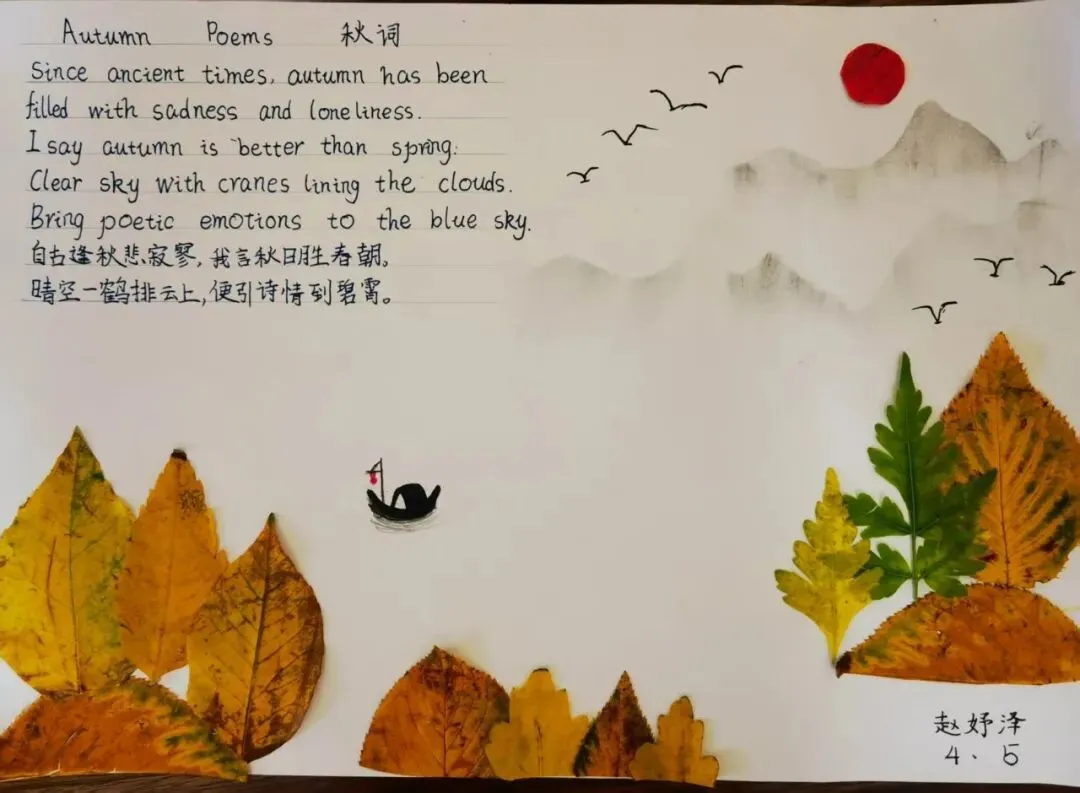 Autumn Poems 秋词
Since ancient times, autumn has been
filled with sadness and loneliness.
I say autumn is better than spring.
Clear sky with cranes lining the clouds.
Bring poetic emotions to the blue sky.
自古逢秋悲寂寥,我言秋日胜春朝。
晴空一鹤排云上,便引诗情到碧霄。
赵妤泽
4、5